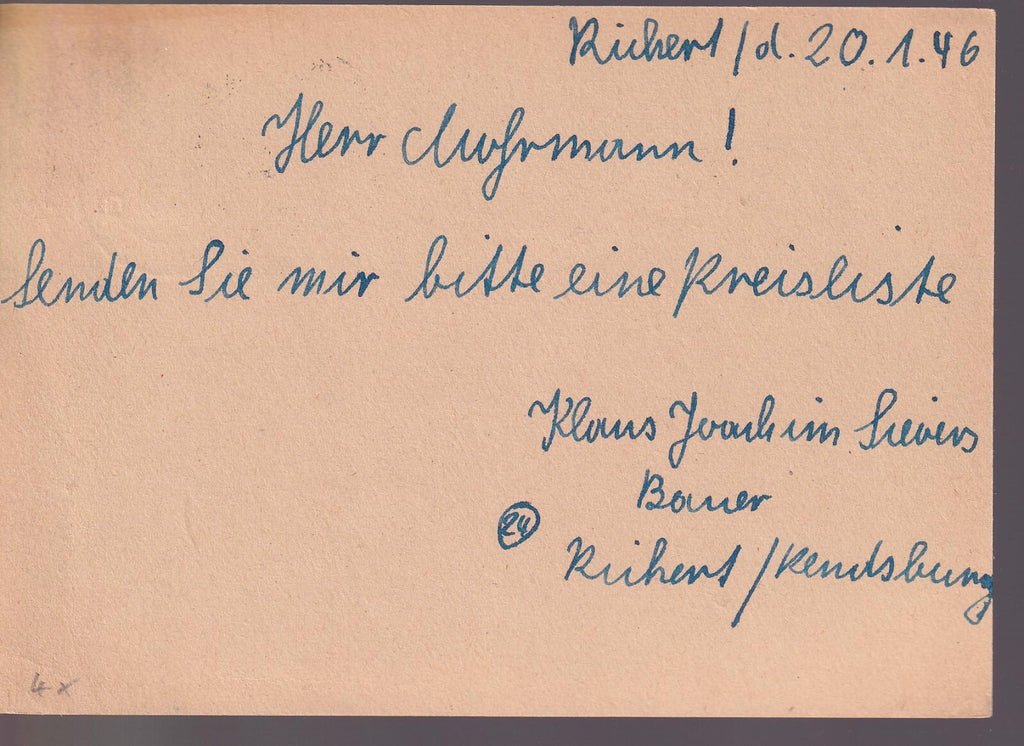 Rickert / d. 20.1.46
Herr Mohrmann!
Senden Sie mir bitte eine Preisliste
Klaus Joachim Sievers
Bauer
24
Rickert / Rendsburg
4 x